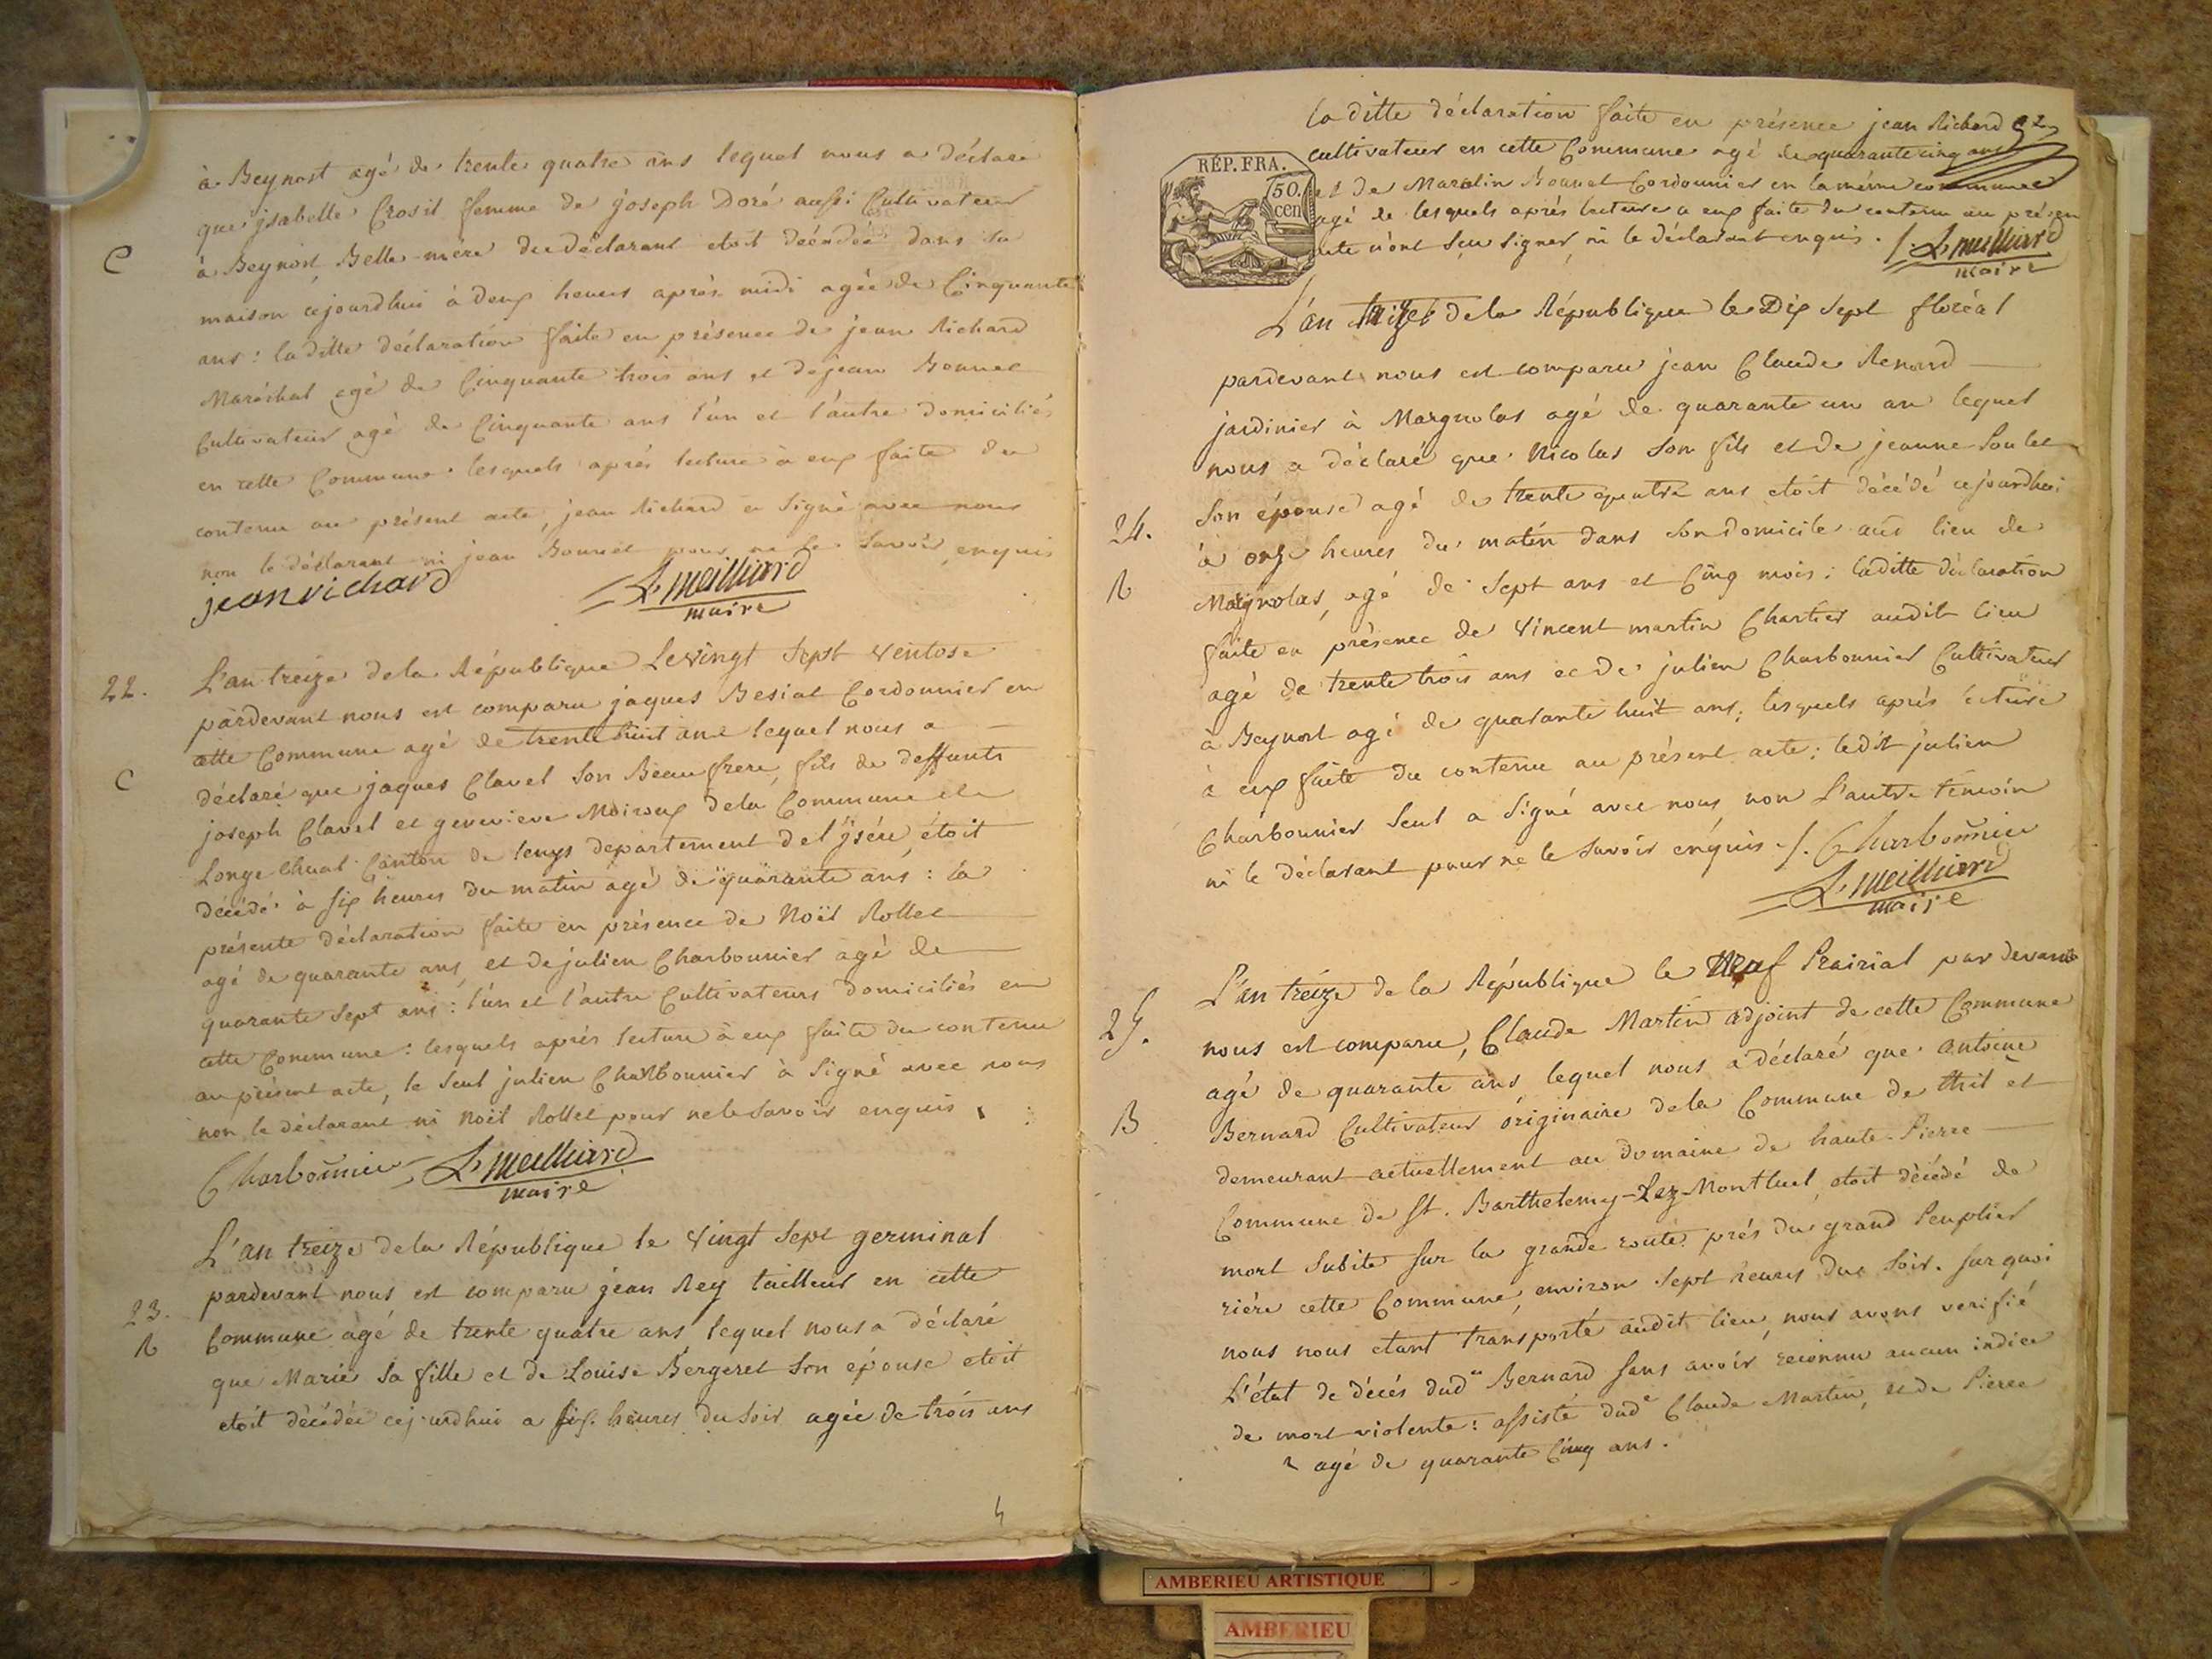 à Beynost agé de trente quatre ans lequel nous a déclaré
que jsabelle Crosit femme de joseph Doré aussi Cultivateur
C
à Beynost, Belle-mére du déclarant etoit décédée dans sa
maison cejourdhui à deux heures aprés midi agée de Cinquante
ans : laditte déclaration faite en présence de jean Richard
Maréchal agé de Cinquante trois ans et de jean Bonnet
Cultivateur agé de Cinquante ans l'un et l'autre domiciliés
en cette Commune. lesquels aprés lecture à eux faite du
contenu au présent acte, jean Richard a Signé avec nous
non le déclarant ni jean Bonnet pour ne le Savoir, enquis
jean richard
L. Meilliard
maire
22.
L'an treize de la République Le vingt Sept ventose
pardevant nous est comparu jaques Besiat Cordonnier en
cette Commune agé de trente huit ans lequel nous a
C
déclaré que jaques Clavel Son Beaufrere, fils de deffunts
joseph Clavel et genevieve Moiroux de la Commune de
Longe Chenal Canton de lemps departement de l'ysére, étoit
décédé à six heures du matin agé de quarante ans : la
présente déclaration faite en présence de Noël Rollet
agé de quarante ans, et de julien Charbonnier agé de
quarante Sept ans : l'un et l'autre Cultivateurs domiciliés en
cette Commune : lesquels aprés lecture à eux faite du contenu
au présent acte, le Seul julien Charbonnier à Signé avec nous
non le déclarant ni Noël Rollet pour ne le Savoir enquis.
Charbonnier
L. Meilliard
maire
L'an treize de la République le vingt Sept germinal
pardevant nous est comparu jean Rey tailleur en cette
23.
Commune agé de trente quatre ans lequel nous a déclaré
R
que Marie Sa fille et de Louise Bergeret Son épouse etoit
etoit décédée cejourdhui a six heures du Soir agée de trois ans
laditte déclaration faite en présence jean Richard
cultivateur en cette Commune agé de quarante cinq ans
RÉP. FRA.
50.
cen
et de Bonnet Cordonnier en la même commune
agé de lesquels aprés lecture a eux faite du contenu au présen
acte n'ont Sçu Signer, ni le déclarant enquis. /.
L. Meilliard
maire
L'an treize de la République le Dix Sept floréal
pardevant nous est comparu jean Claude Renard
jardinier à Margnolas agé de quarante un an lequel
nous a déclaré que Nicolas Son fils et de jeanne Soulet
Son épouse agé de trente quatre ans etoit décédé cejourdhui
24.
à onze heures du matin dans Son domicile aud lieu de
R
Margnolas, agé de Sept ans et Cinq mois : laditte déclaration
faite en présence de Vincent martin Chartier audit lieu
agé de trente trois ans et de julien Charbonnier Cultivateur
à Beynost agé de quarante huit ans, lesquels aprés lecture
à eux faite du contenu au présent acte ; ledit julien
Charbonnier Seul a Signé avec nous, non L'autre témoin
ni le déclarant pour ne le Savoir enquis. /. Charbonnier
L. Meilliard
maire
L'an treize de la République le Neuf Prairial par devant
25.
nous est comparu, Claude Martin adjoint de cette Commune
agé de quarante ans lequel nous a déclaré que Antoine
B
Bernard Cultivateur originaire de la Commune de thil et
demeurant actuellement au domaine de haute-Pierre
Commune de St. Barthelemy-Lez-Montluel, etoit décédé de
mort Subite Sur la grande route prés du grand Peuplier
riére cette Commune, environ Sept heures du Soir. Sur quoi
nous nous etant transporté audit lieu, nous avons verifié
L'état de décés dud. Bernard Sans avoir reconnu aucun indice
de mort violente : assisté dud. Claude Martin, et de Pierre
agé de quarante Cinq ans.
AMBERIEU ARTISTIQUE
AMBERIEU